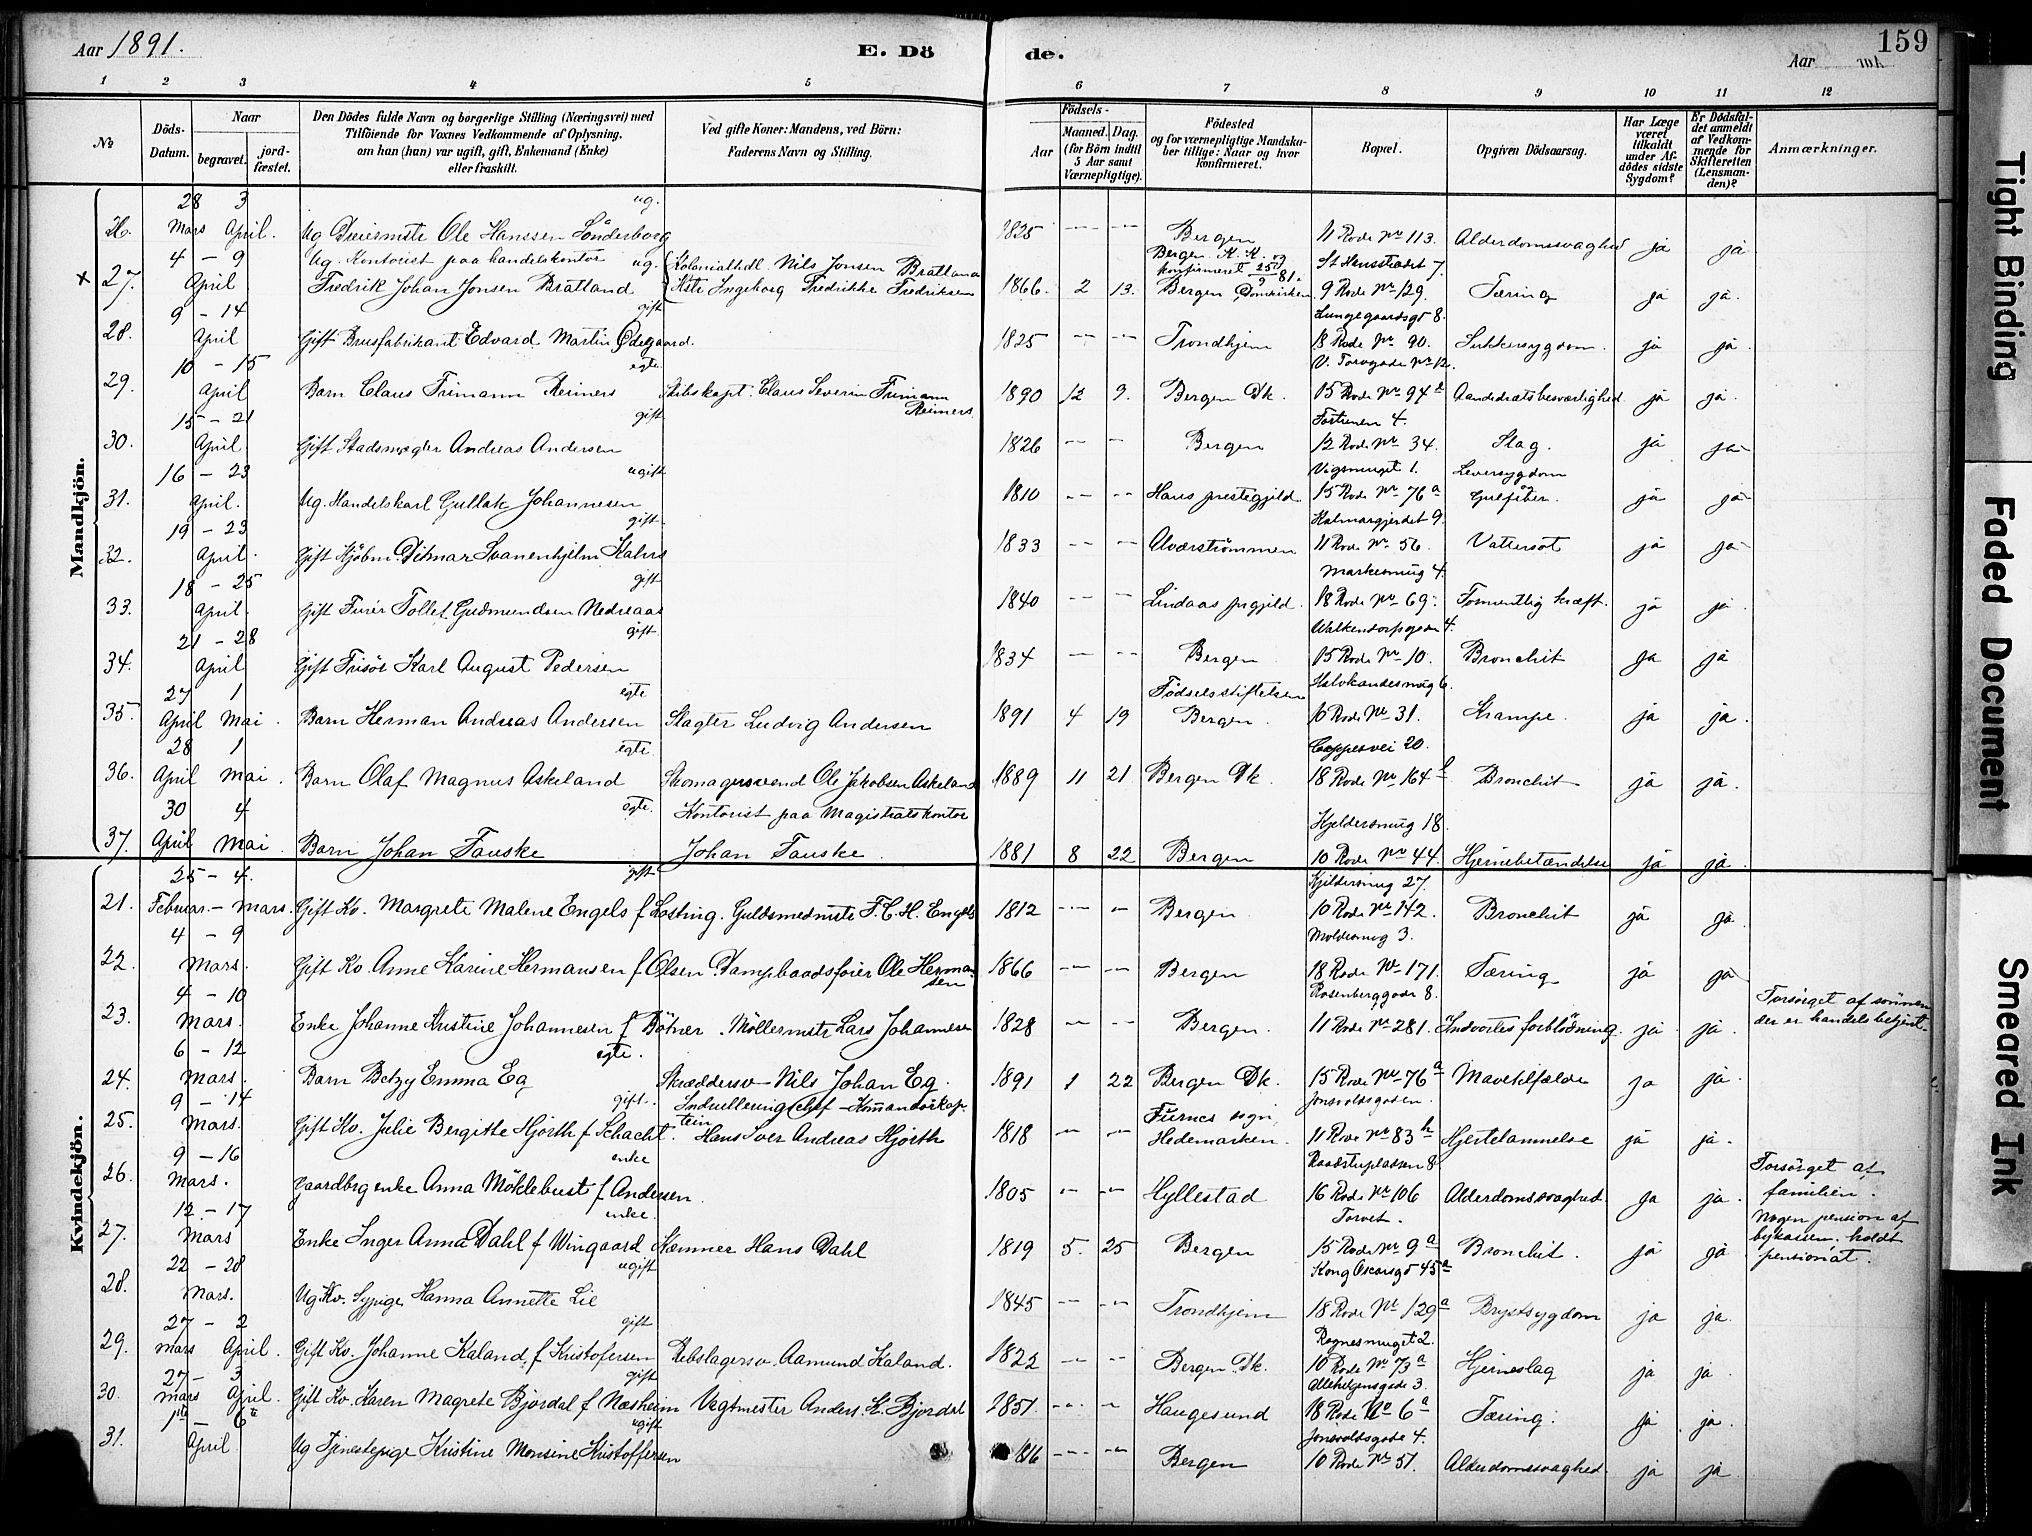 Aar 1891. E. Dö de. Aar 159
1 2 3 4 5 6 7 8 9 10 11 12
№ Döds-Datum. Naar begravet. jord-fæstet. Den Dödes fulde Navn og borgerlige Stilling (Næringsvei) med Tilföiende for Voxnes Vedkommende af Oplysning, om han (hun) var ugift, gift, Enkemand (Enke) eller fraskilt. Ved gifte Koner: Mandens, ved Börn: Faderens Navn og Stilling. Födsels- Aar Maaned. Dag. (for Börn indtil 5 Aar samt Værnepligtige). Födested og for værnepligtige Mandskaber tillige: Naar og hvor konfirmeret. Bopæl. Opgiven Dödsaarsag. Har Læge været tilkaldt under Afdödes sidste Sygdom? Er Dödsfaldet anmeldt af Vedkommende for Skifteretten (Lensmanden)? Anmærkninger.
Mandkjön.
28 3 ug.
26. Mars April. Ug Dreiermstr Ole Hanssen Sönderborg 1825 -- -- Bergen 11 Rode No 113. Alderdomssvaghed ja ja
4 - 9 Ug. Kontorist paa handelskontor ug. Kolonialhdl. Nils Jonsen Bratland Bergen K. K. og konfirmeret 25/9 81. St Hansstrædet 7.
x 27. April Fredrik Johan Jonsen Bratland Kste Ingeborg Fredrikke Fredriksen 1866. 2 13. Bergen Domkirken 9 Rode No 129. Tæring ja ja.
9 - 14 gift Lungegaardsgt 8.
28. April Gift Brusfabrikant Edvard Martin Ödegaard. 1825 -- -- Trondhjem 18 Rode No 90. Sukkersygdom. ja ja.
10 - 15 egte V. Torvgade No 12.
29. April Barn Claus Frimann Reimers Skibskapt. Claus Severin Frimann Reimers. 1890 12 9. Bergen Dk. 15 Rode No 94 Aandedrætsbesværlighed ja ja.
15 - 21 gift 4.
30. April Gift Stadsmægler Andreas Andersen 1826 -- - Bergen 12 Rode No 34. Slag. ja ja
16 - 23 ugift Vigsmuget 1. Leversygdom og
31. April. Ug. Handelskarl Gullak Johannesen 1810 -- -- Haus prestegjeld. 15 Rode No 76a Gulfeber. ja ja
19 - 23 gift Kalmargjerdet 9.
32. April. Gift Kjöbm. Ditmar Svanenhjelm Kahrs 1833 -- -- Alværströmmen 11 Rode No 56. Vattersot ja ja
18 - 25 gift Markesmug 4.
33. April. Gift Furér Tollef Gudmundsen Nedreaas 1840 -- -- Lindaas prgjeld. 18 Rode No 69. kræft. ja ja
21 - 28 gift Walkendorpsgaden 4.
34. April Gift Frisör Karl August Pedersen 1834 -- -- Bergen. 15 Rode No 10. Bronchit ja ja
27 1 egte Födselsstiftelsen 6.
35. April Mai Barn Herman Andreas Andersen Slagter Ludvig Andersen 1891 4 19 Bergen. 10 Rode No 31. Krampe. ja ja.
28 1 egte. 20.
36. April Mai. Barn Olaf Magnus Askeland Skomagersvend Ole Jakobsen Askeland 1889 11 21. Bergen Dk. 18 Rode No 164 Bronchit ja ja.
30 4 egte. Kontorist paa Magistratskontor Kjeldersmug 18.
37. April Mai. Barn Johan Fauske Johan Fauske. 1881 8 22 Bergen 10 Rode No 44. Hjernebetændelse ja ja.
Kvindekjön.
25 - 4. gift Kjeldersmug 27.
21. Februar - Mars. Gift Kv. Margrete Malene Engels f Losting. Guldsmedmstr F. C. H. Engels 1812 -- - Bergen. 10 Rode No 142. Bronchit ja ja.
4 - 9 Moldesmug 3.
22. Mars. Gift Kv. Anne Karine Hermansen f Olsen. Dampbaadsförer Ole Hermansen 1866 -- -- Bergen 18 Rode No 171. Tæring ja ja
4 - 10 Rosenberggade 8. Forsörget af sönnen
23. Mars. Enke Johanne Kristine Johannesen f Bötner. Möllermstr Lars Johannesen 1828 -- -- Bergen. 11 Rode No 281. Indvortes forblödning. ja ja. der er handelsbetjent.
6 - 12 egte.
24. Mars. Barn Betzy Emma Eg Skræddersv Nils Johan Eg. 1891 1 22 Bergen Dk. 15 Rode No 76a Mavetilfælde ja ja.
9 - 14 gift. Indrulleringschef - Kommandörkaptein Furnes sogn Jonsvoldsgaden.
25. Mars. Gift Kv. Julie Bergitte Hjorth f Schacht. Hans Iver Andreas Hjorth 1818 -- -- Hedemarken. 11 Rode No 83 Hjertelammelse ja ja.
9 - 16 enke Raadstupladsen 8 Forsörget af
26. Mars. Gaardbrg enke Anna Möklebust f Andersen. 1805 -- -- Hyllestad 16 Rode No 106 Alderdomssvaghed ja ja. familien.
12 - 17 enke. Torvet. Nogen pension af
27. Mars Enke Inger Anna Dahl f Wingaard Stemner Hans Dahl 1819 5. 25 Bergen 15 Rode No 9a Bronchit. ja ja bykassen. holdt
22 - 28 ugift Kong Oscarsgt 45a pensionat.
28. Mars. Ug Kv. Sypige Hanna Annette Lie 1845 -- -- Trondhjem 18 Rode No 129a Brystsygdom ja ja.
27 - 2 gift Rognesmuget 2.
29. Mars April. Gift Kv. Johanne Kaland, f Kristofersen Rebslagersv. Aamund Kaland. 1822 -- -- Bergen Dk. 10 Rode No 73a Hjerneslag ja ja.
27 - 3 gift Allehelgensgade 3.
30. Mars April. Gift Kv. Karen Magrete Bjordal f Næsheim Vegtmester Anders. K. Bjordal 1851. -- - Haugesund 18 Rode No 6a Tæring. ja ja.
1ste - 6te ugift Jonsvoldsgade 4.
31. April. Ug Tjenestepige Kristine Monsine Kristoffersen 1816 -- -- Bergen 10 Rode No 51. Alderdomssvaghed. ja ja.
Tight Binding
Faded Document
Smeared Ink